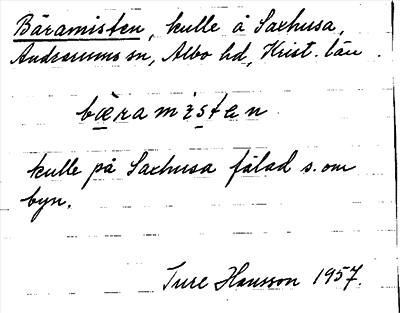 Bäramisten, kulle å Saxhusa,
Andrarums sn, Albo hd, Krist. län.
bæramistɐn
kulle på Saxhusa fälad s. om
byn.
Ture Hansson 1957.